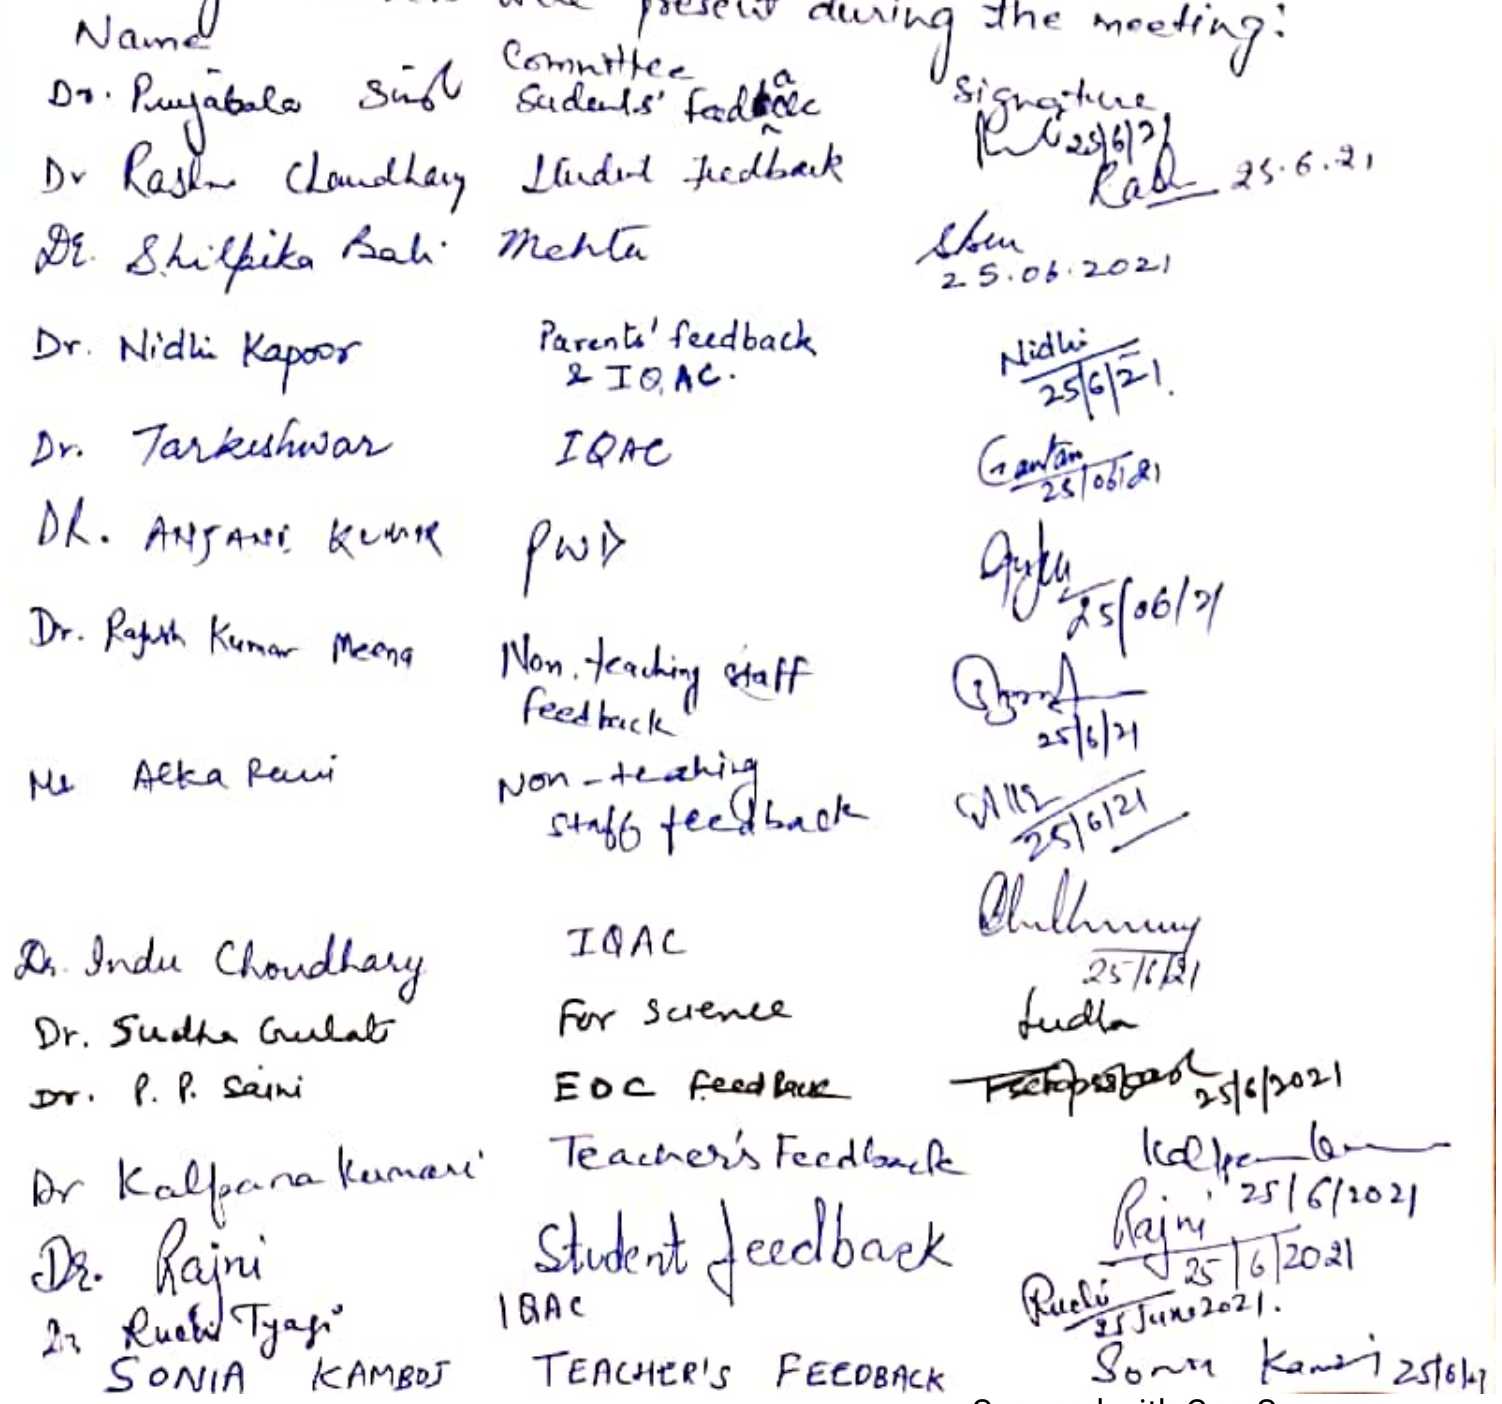 were present during the meeting:
Name Committee Signature
Dr. Punjabala Singh Sudents' feedback 25/6/21
Dr Rashmi Choudhary Student Feedback 25.6.21
Dr. Shilpika Bali Mehta 25.06.2021
Dr. Nidhi Kapoor Parents' feedback Nidhi
& IQAC. 25/6/21.
Dr. Tarkeshwar IQAC Gautam
25/06/21
DR. ANJANI KUMAR PWD
25/06/21
Dr. Rajesh Kumar Meena Non-teaching staff
feedback 25/6/21
Ms Alka Rani Non-teaching
staff feedback 25/6/21
Dr. Indu Choudhary IQAC
25/6/21
Dr. Sudha Gulati For Science Sudha
Dr. P. P. Saini EOC feedback 25/6/2021
Dr Kalpana Kumari Teacher's Feedback Kalpana
25/6/2021
Dr. Rajni Student feedback Rajni
25/6/2021
Dr Ruchi Tyagi IQAC Ruchi
25 June 2021.
SONIA KAMBOJ TEACHER'S FEEDBACK Sonia Kamboj 25/6/21